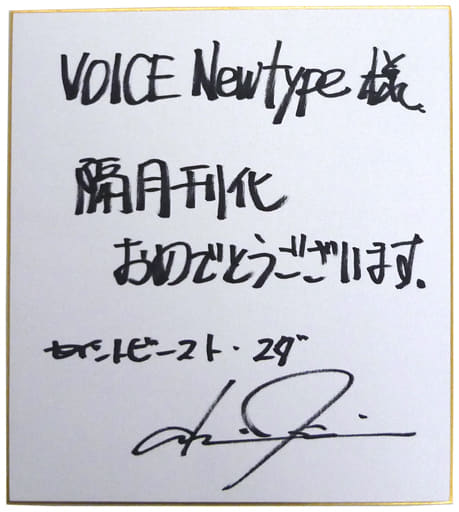 VOICE Newtype 様
隔月刊化
おめでとうございます.
セイントビースト・ユダ